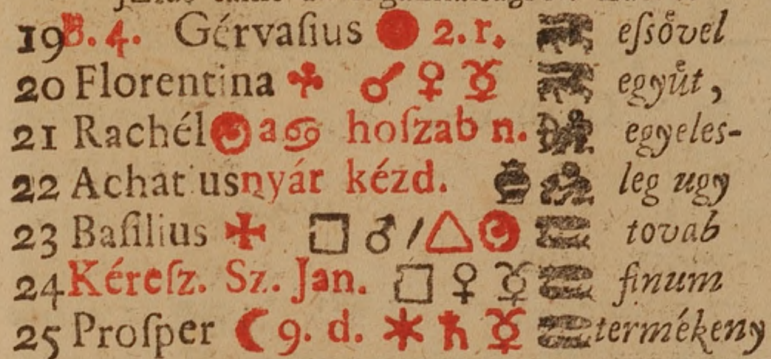 19 B. 4. Gérvaſius 2. r. eſsővel
20 Florentina ♂ ♀ ☿ együt,
21 Rachél a ♋ hoſzab n. egyeles-
22 Achatius nyár kézd. leg ugy
23 Baſilius □ ♂ △ tovab
24 Kéreſz. Sz. Jan. □ ♀ ☿ finum
25 Proſper ☾ 9. d. ✶ ♄ ☿ termékeny